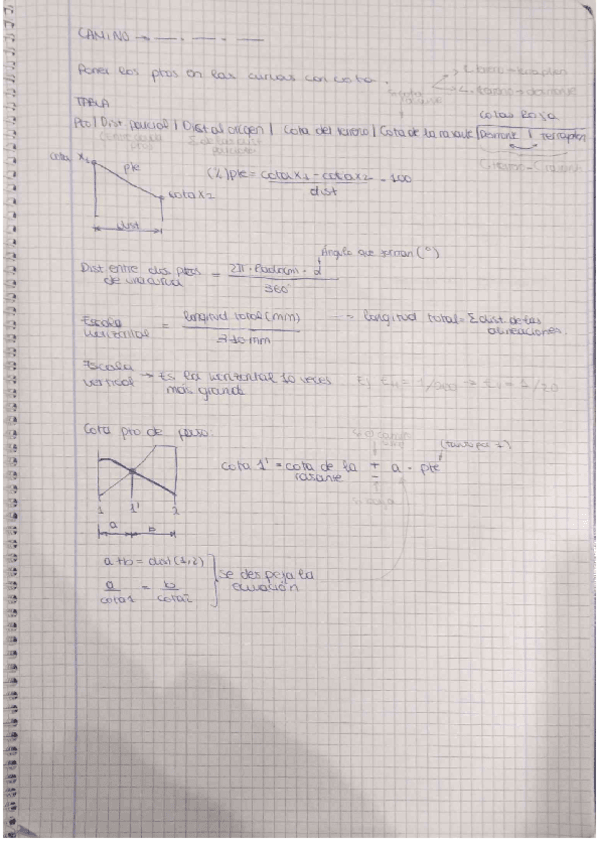 CAMINO → — . — . —
Poner los ptos en las curvas con cota.
TABLA
cotas Roja
Pto | Dist parcial | Dist al origen | Cota del terreno | Cota de la rasante | Desmonte | Terraplén
cota x1
pte
cota x2
dist
(%) pte = cota x1 - cota x2 · 100
dist
Ángulo que forman (°)
Dist entre dos ptos de una curva = 2π · Radio(m) · α
360°
Escala horizontal = longitud total (mm) → longitud total = Σ dist. de las alineaciones.
710 mm
Escala vertical → Es la horizontal 10 veces más grande
Cota pto de paso:
(tanto por 1)
cota 1' = cota de la rasante ± a · pte
1 1' 2
a b
a+b = dist (1,2)
a = b
cota1 cota2
se despeja la ecuación